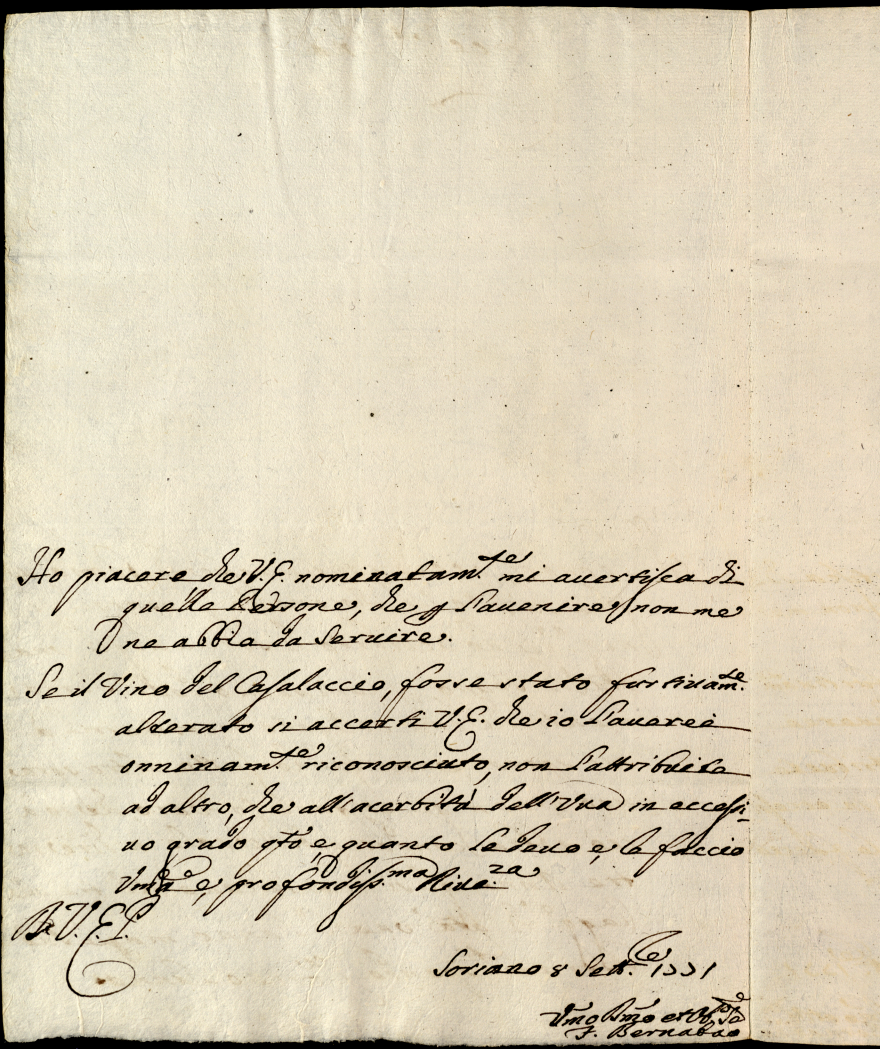 Ho piacere che V.E. nominatam.te mi avertisca di
quelle Persone, che p l'avenire non me
ne abbia da servire.
Se il Vino del Casalaccio, fosse stato furtivam.te
alterato si accerti V.E. che io l'averei
onninam.te riconosciuto, non l'attribuisca
ad altro, che all'acerbità dell'Uva in eccessi-
vo grado qto, e quanto le devo e, le faccio
e, profondiss.ma Rive.za
V.E.
Soriano 8 Sett.e 1771
Vmo
F. Bernabao